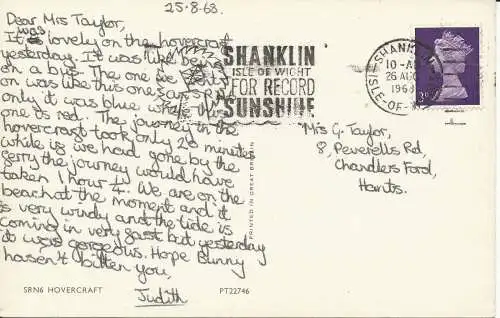 25-8-68.
Dear Mrs Taylor,
It was lovely on the hovercraft
yesterday. It was like being
on a bus. The one we went
on was like this one says R.N.
only it was blue while this
one is red. The journey in the
hovercraft took only 20 minutes
while is we had gone by the
ferry the journey would have
taken 1 hour ¼. We are on the
beach at the moment and it
is very windy and the tide is
coming in very fast but yesterday
it was gorgeous. Hope Bunny
hasen't bitten you,
Judith
SRN6 HOVERCRAFT
PT22746
PRINTED IN GREAT BRITAIN
SHANKLIN
ISLE OF WIGHT
FOR RECORD
SUNSHINE
SHANKLIN
10-AM
26 AUG
1968
ISLE-OF-W
Mrs G. Taylor,
8, Peverells Rd,
Chandlers Ford,
Hants.